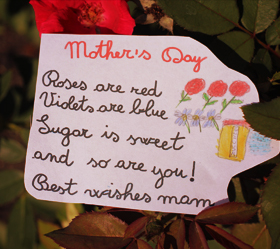 Mother's Day
Roses are red
Violets are blue
Sugar is sweet
and so are you!
Best wishes mam